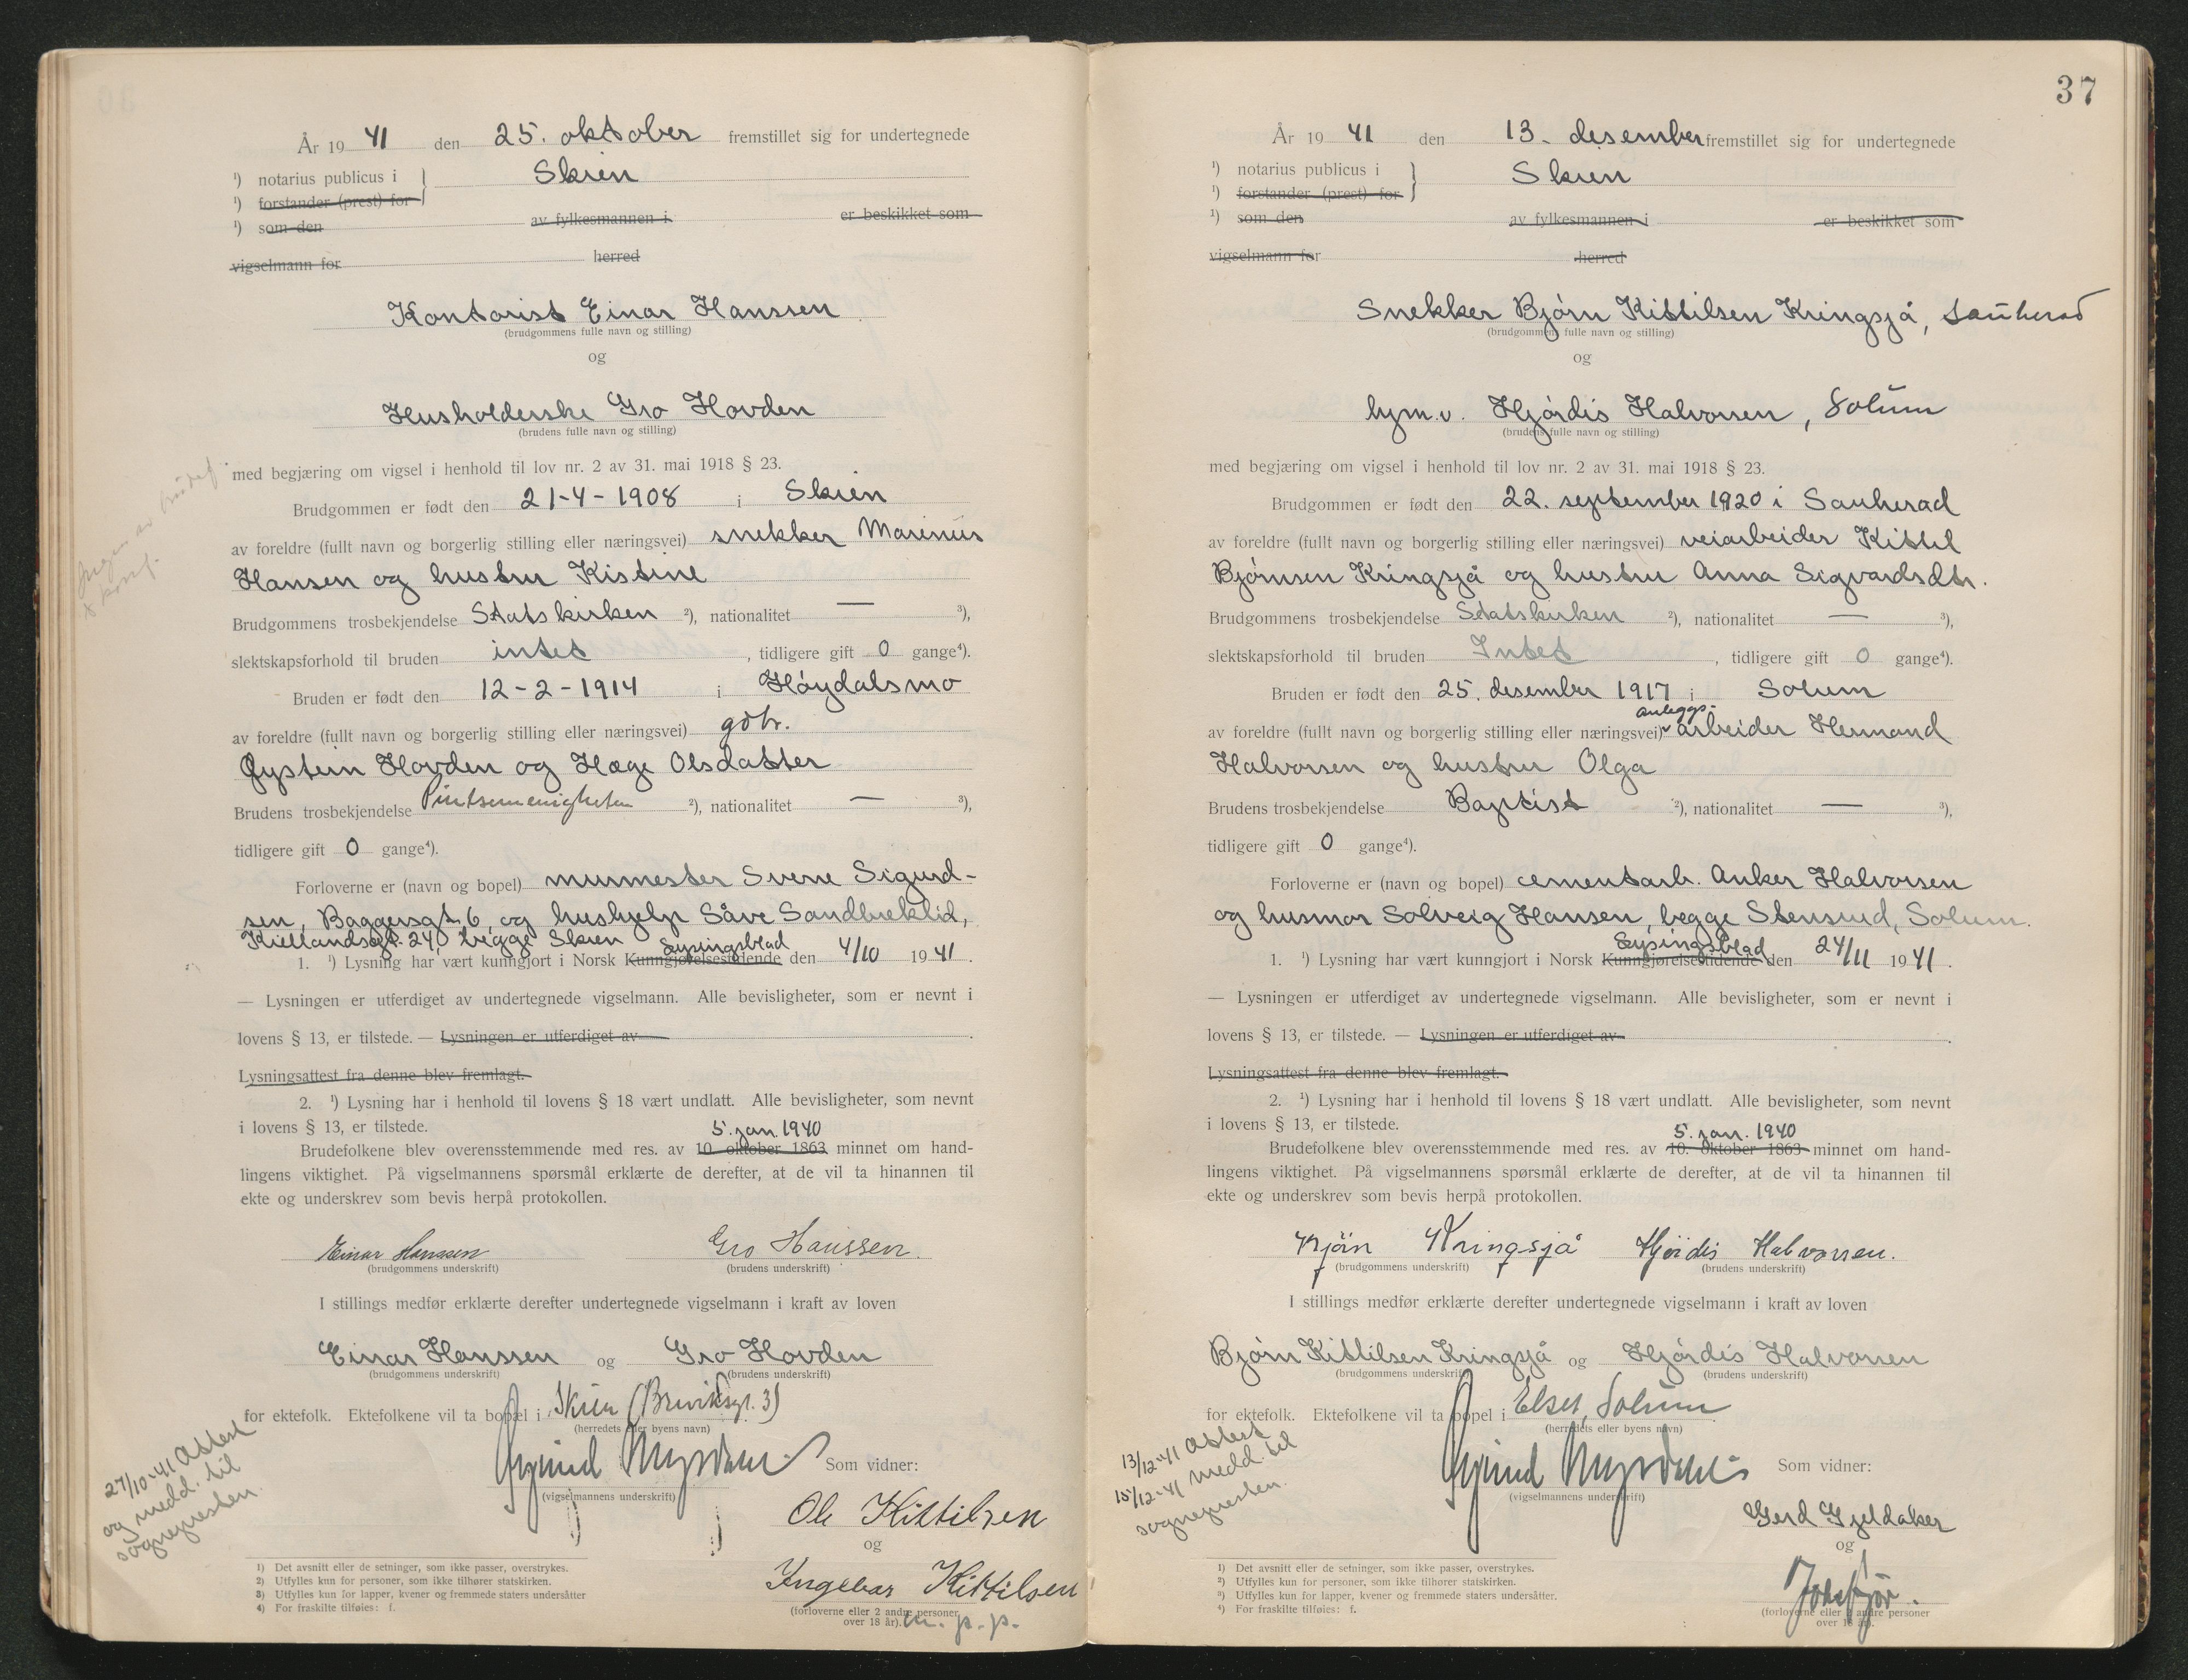 År 1941 den 25. oktober fremstillet sig for undertegnede
¹) notarius publicus i } Skien
¹) forstander (prest) for
¹) som den av fylkesmannen i er beskikket som
vigselmann for herred
Kontorist Einar Hanssen
(brudgommens fulle navn og stilling)
og
Husholderske Gro Hovden
(brudens fulle navn og stilling)
med begjæring om vigsel i henhold til lov nr. 2 av 31. mai 1918 § 23.
Brudgommen er født den 21-4-1908 i Skien
av foreldre (fullt navn og borgerlig stilling eller næringsvei) snekker Marinus
Hansen og hustru Kistine
Brudgommens trosbekjendelse Statskirken ²), nationalitet — ³),
slektskapsforhold til bruden intet, tidligere gift 0 gange⁴).
Bruden er født den 12-2-1914 i Høydalsmo
av foreldre (fullt navn og borgerlig stilling eller næringsvei) gdbr.
Øystein Hovden og Hæge Olsdatter
Brudens trosbekjendelse Pintsemenigheten ²), nationalitet — ³),
tidligere gift 0 gange⁴).
Forloverne er (navn og bopel) murmester Sverre Sigurd-
sen, Baggersgt. 6, og hushjelp Såve Sandbrekklid,
Kiellandsgt. 24, begge Skien
Lysingsblad
1. ¹) Lysning har vært kunngjort i Norsk Kunngjørelsestidende den 4/10 1941.
— Lysningen er utferdiget av undertegnede vigselmann. Alle bevisligheter, som er nevnt i
lovens § 13, er tilstede. — Lysningen er utferdiget av
Lysningsattest fra denne blev fremlagt.
2. ¹) Lysning har i henhold til lovens § 18 vært undlatt. Alle bevisligheter, som nevnt
i lovens § 13, er tilstede.
5. jan. 1940
Brudefolkene blev overensstemmende med res. av 10. oktober 1863 minnet om hand-
lingens viktighet. På vigselmannens spørsmål erklærte de derefter, at de vil ta hinannen til
ekte og underskrev som bevis herpå protokollen.
Einar Hanssen Gro Hanssen.
(brudgommens underskrift) (brudens underskrift)
I stillings medfør erklærte derefter undertegnede vigselmann i kraft av loven
Einar Hanssen og Gro Hovden
(brudgommens underskrift) (brudens underskrift)
for ektefolk. Ektefolkene vil ta bopæl i Skien (Breviksgt. 3)
(herredets eller byens navn)
27/10-41 Attest
og medd. til
sognepresten.
Som vidner:
(vigselmannens underskrift)
Ole Kittilsen
og
Ingebor Kittilsen
(forloverne eller 2 andre personer
over 18 år). m. p. p.
1) Det avsnitt eller de setninger, som ikke passer, overstrykes.
2) Utfylles kun for personer, som ikke tilhører statskirken.
3) Utfylles kun for lapper, kvener og fremmede staters undersåtter
4) For fraskilte tilføies: f.
37
År 1941 den 13. desember fremstillet sig for undertegnede
¹) notarius publicus i } Skien
¹) forstander (prest) for
¹) som den av fylkesmannen i er beskikket som
vigselmann for herred
Snekker Bjørn Kittilsen Kringsjå, Sauherad
(brudgommens fulle navn og stilling)
og
hjm.v. Hjørdis Halvorsen, Solum
(brudens fulle navn og stilling)
med begjæring om vigsel i henhold til lov nr. 2 av 31. mai 1918 § 23.
Brudgommen er født den 22. september 1920 i Sauherad
av foreldre (fullt navn og borgerlig stilling eller næringsvei) veiarbeider Kittil
Bjørnsen Kringsjå og hustru Anna Sigvardsdtr.
Brudgommens trosbekjendelse Statskirken ²), nationalitet — ³),
slektskapsforhold til bruden Intet, tidligere gift 0 gange⁴).
Bruden er født den 25. desember 1917 i Solum
anleggs-
av foreldre (fullt navn og borgerlig stilling eller næringsvei) arbeider Hermand
Halvorsen og hustru Olga
Brudens trosbekjendelse Baptist ²), nationalitet — ³),
tidligere gift 0 gange⁴).
Forloverne er (navn og bopel) cementarb. Anker Halvorsen
og husmor Solveig Hansen, begge Stensrud, Solum.
Lysingsblad
1. ¹) Lysning har vært kunngjort i Norsk Kunngjørelsestidende den 24/11 1941.
— Lysningen er utferdiget av undertegnede vigselmann. Alle bevisligheter, som er nevnt i
lovens § 13, er tilstede. — Lysningen er utferdiget av
Lysningsattest fra denne blev fremlagt.
2. ¹) Lysning har i henhold til lovens § 18 vært undlatt. Alle bevisligheter, som nevnt
i lovens § 13, er tilstede.
5. jan. 1940
Brudefolkene blev overensstemmende med res. av 10. oktober 1863 minnet om hand-
lingens viktighet. På vigselmannens spørsmål erklærte de derefter, at de vil ta hinannen til
ekte og underskrev som bevis herpå protokollen.
Bjørn Kringsjå Hjördis Halvorsen.
(brudgommens underskrift) (brudens underskrift)
I stillings medfør erklærte derefter undertegnede vigselmann i kraft av loven
Bjørn Kittilsen Kringsjå og Hjørdis Halvorsen
(brudgommens underskrift) (brudens underskrift)
for ektefolk. Ektefolkene vil ta bopel i Elset, Solum
(herredets eller byens navn)
13/12-41 Attest
15/12-41 medd. til
sognepresten.
Som vidner:
(vigselmannens underskrift)
Gerd Gjeldaker
og
(forloverne eller 2 andre personer
over 18 år).
1) Det avsnitt eller de setninger, som ikke passer, overstrykes.
2) Utfylles kun for personer, som ikke tilhører statskirken.
3) Utfylles kun for lapper, kvener og fremmede staters undersåtter.
4) For fraskilte tilføies: f.